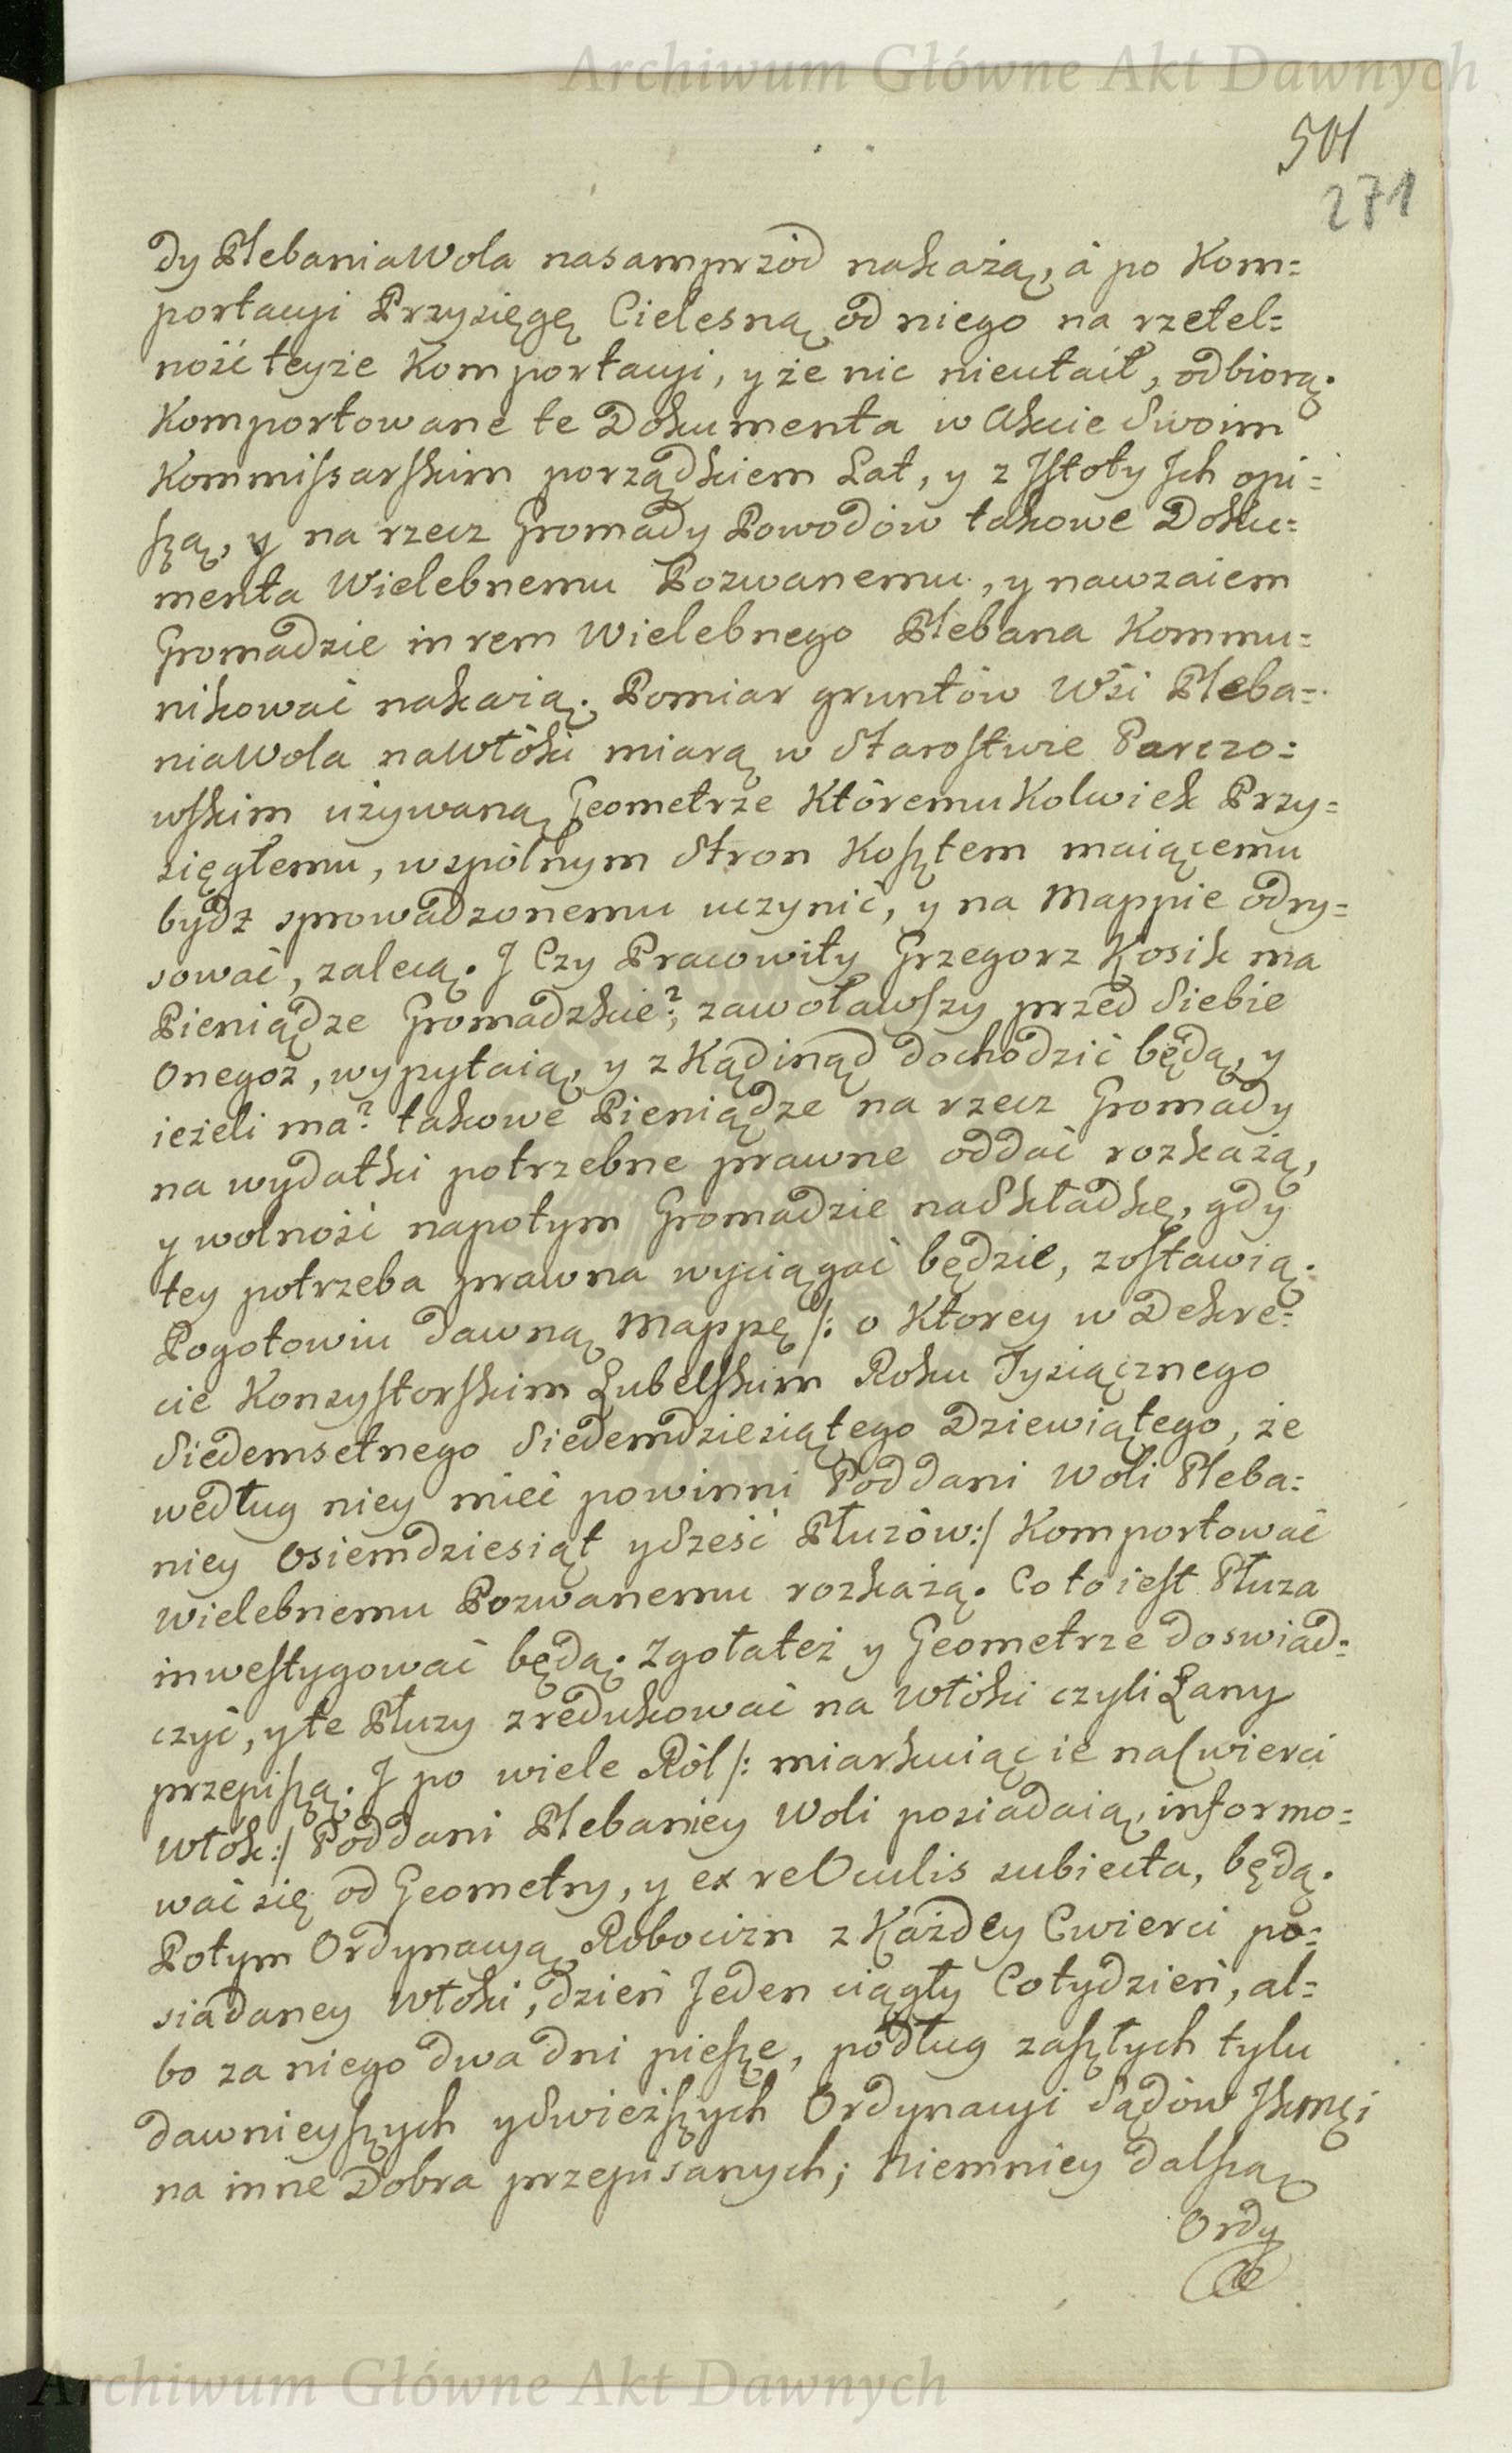 Archiwum Główne Akt Dawnych
501
271
dy Plebania Wola nasamprzód nakażą, á po Kom=
portacyi Przysięgę Cielesną od niego na rzetel=
ność teyże Komportacyi, y że nic nieutaił, odbiorą.
Komportowane te Dokumenta w Akcie Swoim
Kommissarskim porządkiem Lat, y z Istoty Ich opi=
szą, y na rzecz Gromady Powodów takowe Doku=
menta Wielebnemu Pozwanemu, y nawzaiem
Gromadzie in rem Wielebnego Plebana Kommu=
nikować nakażą. Pomiar gruntów Wsi Pleba=
nia Wola na Włóki miarą w Starostwie Parczo=
wskim używaną Geometrze Któremu Kolwiek Przy=
sięgłemu, wspólnym Stron Kosztem maiącemu
bydź sprowadzonemu uczynić, y na Mappie odry=
sować, zalecą. I Czy Pracowity Grzegorz Kosik ma
Pieniądze Gromadzkie?, zawoławszy przed Siebie
Onegoż, wypytaią, y z Kądinąd dochodzić będą, y
ieżeli ma? takowe Pieniądze na rzecz Gromady
na wydatki potrzebne prawne oddać rozkażą,
y wolność napotym Gromadzie na Składkę, gdy
tey potrzeba prawna wyciągać będzie, zostawią.
Pogotowiu dawną Mappę /: o Ktorey w Dekre=
cie Konsystorskim Lubelskim Roku Tysiącznego
Siedemsetnego Siedemdziesiątego Dziewiątego, że
według niey mieć powinni Poddani Woli Pleba=
niey Osiemdziesiąt y Sześć Płuzów :/ Komportować
Wielebnemu Pozwanemu rozkażą. Co to iest Płuza
inwestygować będą. Zgoła też y Geometrze doswiad=
czyć, y te Płuzy zredukować na Włóki czyli Łany
przepiszą. I po wiele Ról /: miarkuiąc ie na Cwierci
Włók :/ Poddani Plebaniey Woli posiadaią, informo=
wać się od Geometry, y ex re Oculis subiecta, będą.
Potym Ordynacyą Robocizn z Każdey Cwierci po=
siadaney Włóki, dzień Jeden ciągły Cotydzień, al=
bo za niego dwa dni piesze, podług zaszłych tylu
dawnieyszych y Swieższych Ordynacyi Sądów JKmci
na inne Dobra przepisanych; niemniey dalszą
Ordy
Archiwum Główne Akt Dawnych